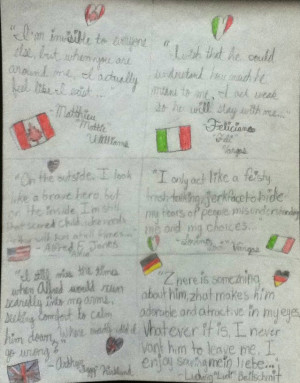 "I am invisible to everyone
else, but when you are
around me, I actually
feel like I exist..."
- Matthew
"Mattie"
Williams
"I wish that he could
understand how much he
means to me, I act weak
so he will stay with me..."
- Feliciano
"Feli"
Vargas
"On the outside, I look
like a brave hero but
on the inside, I'm still
that scared child, who needs
- Alfred F. Jones
"I only act like a feisty
trash talking jerkface to hide
my fears of people misunderstanding
me and my choices..."
Vargas
"I still miss the times
when Alfred would run
scaredly into my arms,
seeking comfort to calm
him down, Where did it all
go wrong?"
- Arthur
Kirkland
"There is something
about him, that makes him
adorable and attractive in my eyes,
whatever it is, I never
want him to leave me. I
enjoy saying mein liebe..."
- Ludwig
Beilschmidt